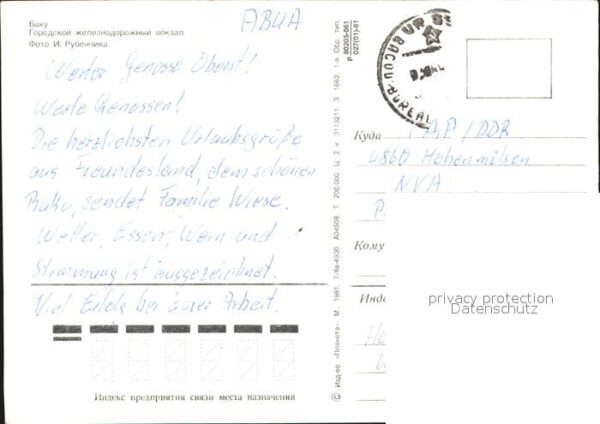 Баку
Городской железнодорожный вокзал
Фото И. Рубенчика
АВИА
Werter Genosse Oberst!
Werte Genossen!
Die herzlichsten Urlaubsgrüße
aus Freundesland, dem schönen
Baku, sendet Familie Wiese.
Wetter, Essen, Wein und
Stimmung ist ausgezeichnet.
Viel Erfolg bei Arbeit.
Индекс предприятия связи места назначения
© Изд-во «Планета» М., 1981. 7/8в-4930. А04908. Т. 200 000. Ц. 2 к. З. 1662. 1-я Обр. тип.
р 80205-061
р 027(01)-81
BACOU
Куда
/DDR
4860 Hohenmölsen
NVA
Кому
Инде
privacy protection
Datenschutz